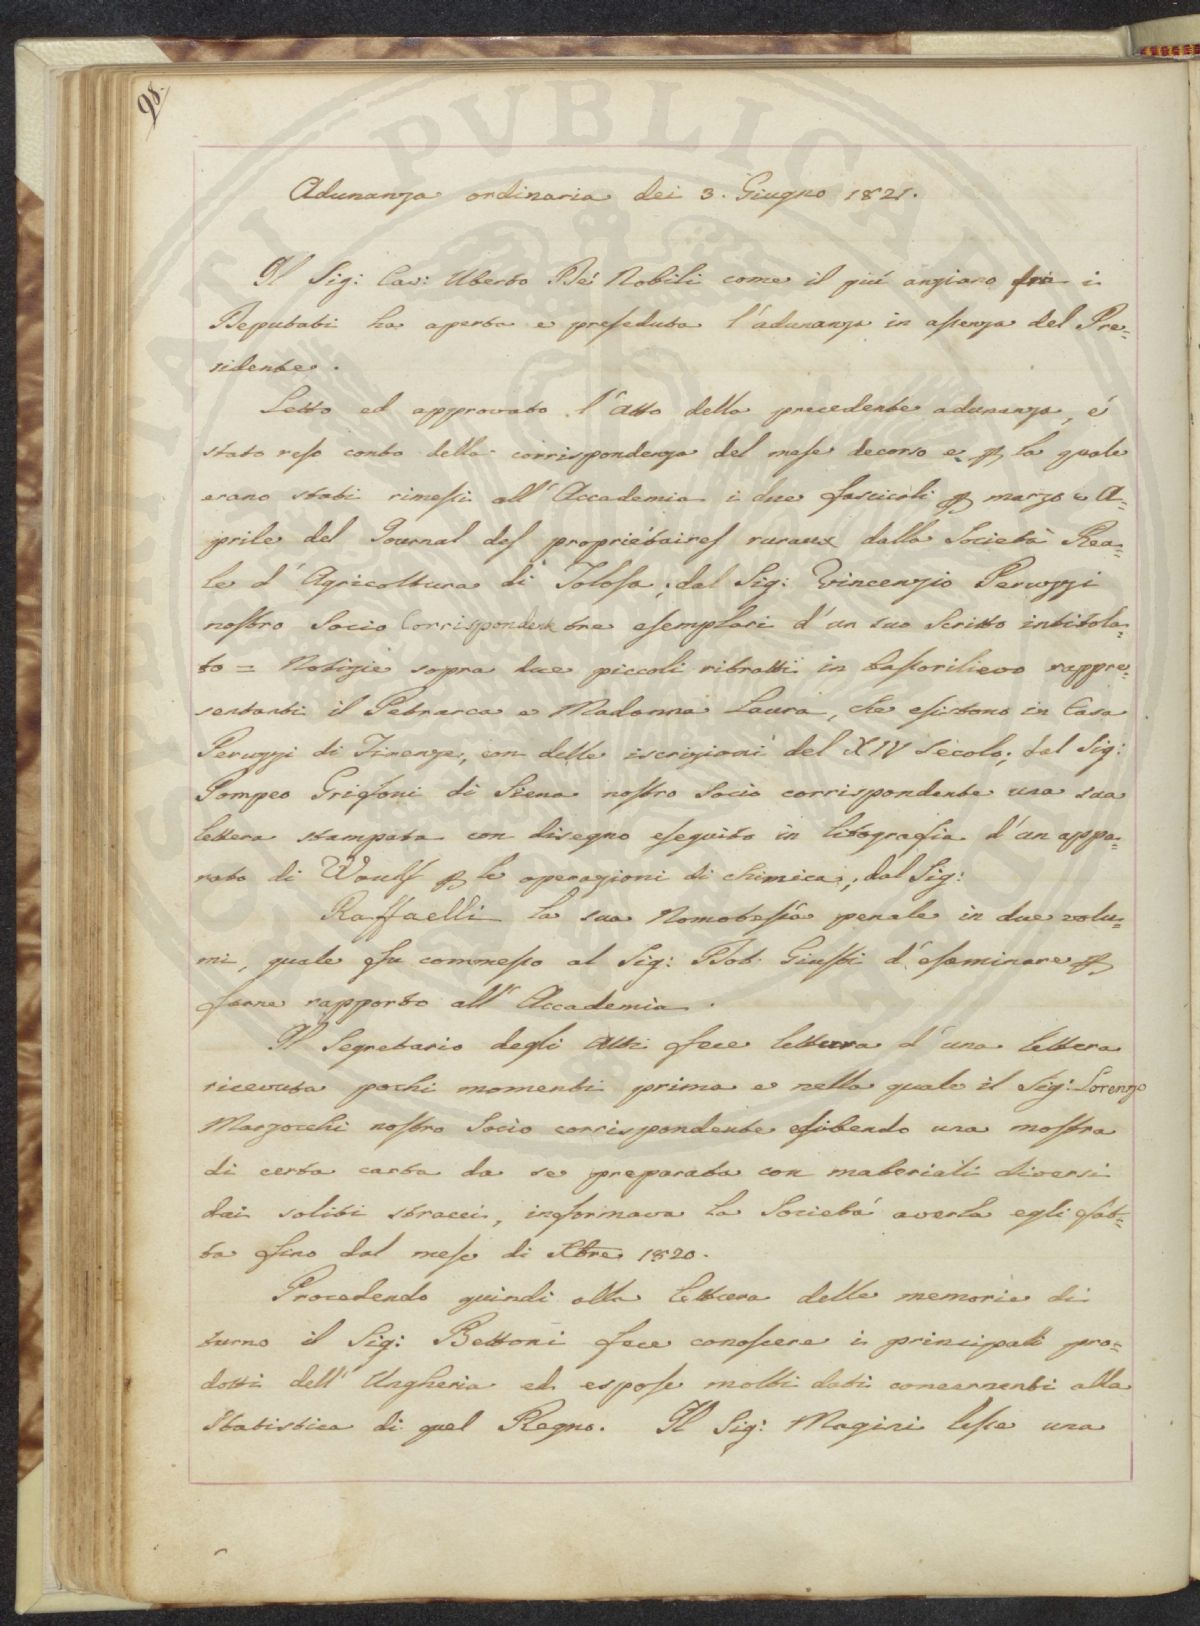 98.
Adunanza ordinaria dei 3. Giugno 1821.
Il Sig: Cav: Uberto De' Nobili come il piú anziano fra i
Deputati ha aperta e preseduta l'adunanza in assenza del Pre=
sidente.
Letto ed approvato l'Atto della precedente adunanza, é
stato reso conto della corrispondenza del mese decorso e la quale
erano stati rimessi all'Accademia i due fascicoli marzo e A=
prile del Journal des propriétaires ruraux dalla Società Rea=
le d'Agricoltura di Tolosa; dal Sig: Vincenzio Peruzzi
nostro Socio Corrispondente tre esemplari d'un suo Scritto intitola=
to = Notizie sopra due piccoli ritratti in bassorilievo rappre=
sentanti il Petrarca e Madonna Laura, che esistono in Casa
Peruzzi di Firenze, con delle iscrizioni del XIV Secolo; dal Sig:
Pompeo Grifoni di Siena nostro Socio corrispondente una sua
lettera stampata con disegno eseguito in litografia d'un appa=
rato di Woulf le operazioni di chimica; dal Sig:
Raffaelli la sua Nomotesía penale in due volu=
mi, quale fu commesso al Sig: Dot. Giusti d'esaminare
farne rapporto all'Accademia.
Il Segretario degli Atti fece lettura d'una lettera
ricevuta pochi momenti prima e nella quale il Sig: Lorenzo
Marzocchi nostro Socio corrispondente esibendo una mostra
di certa carta da se preparata con materiali diversi
dai soliti stracci, informava la Societá averla egli fat=
ta fino dal mese di Xbre 1820.
Procedendo quindi alla lettura delle memorie di
turno il Sig: Bettoni fece conoscere i principali pro=
dotti dell'Ungheria ed espose molti dati concernenti alla
Statistica di quel Regno. Il Sig: Magini lesse una